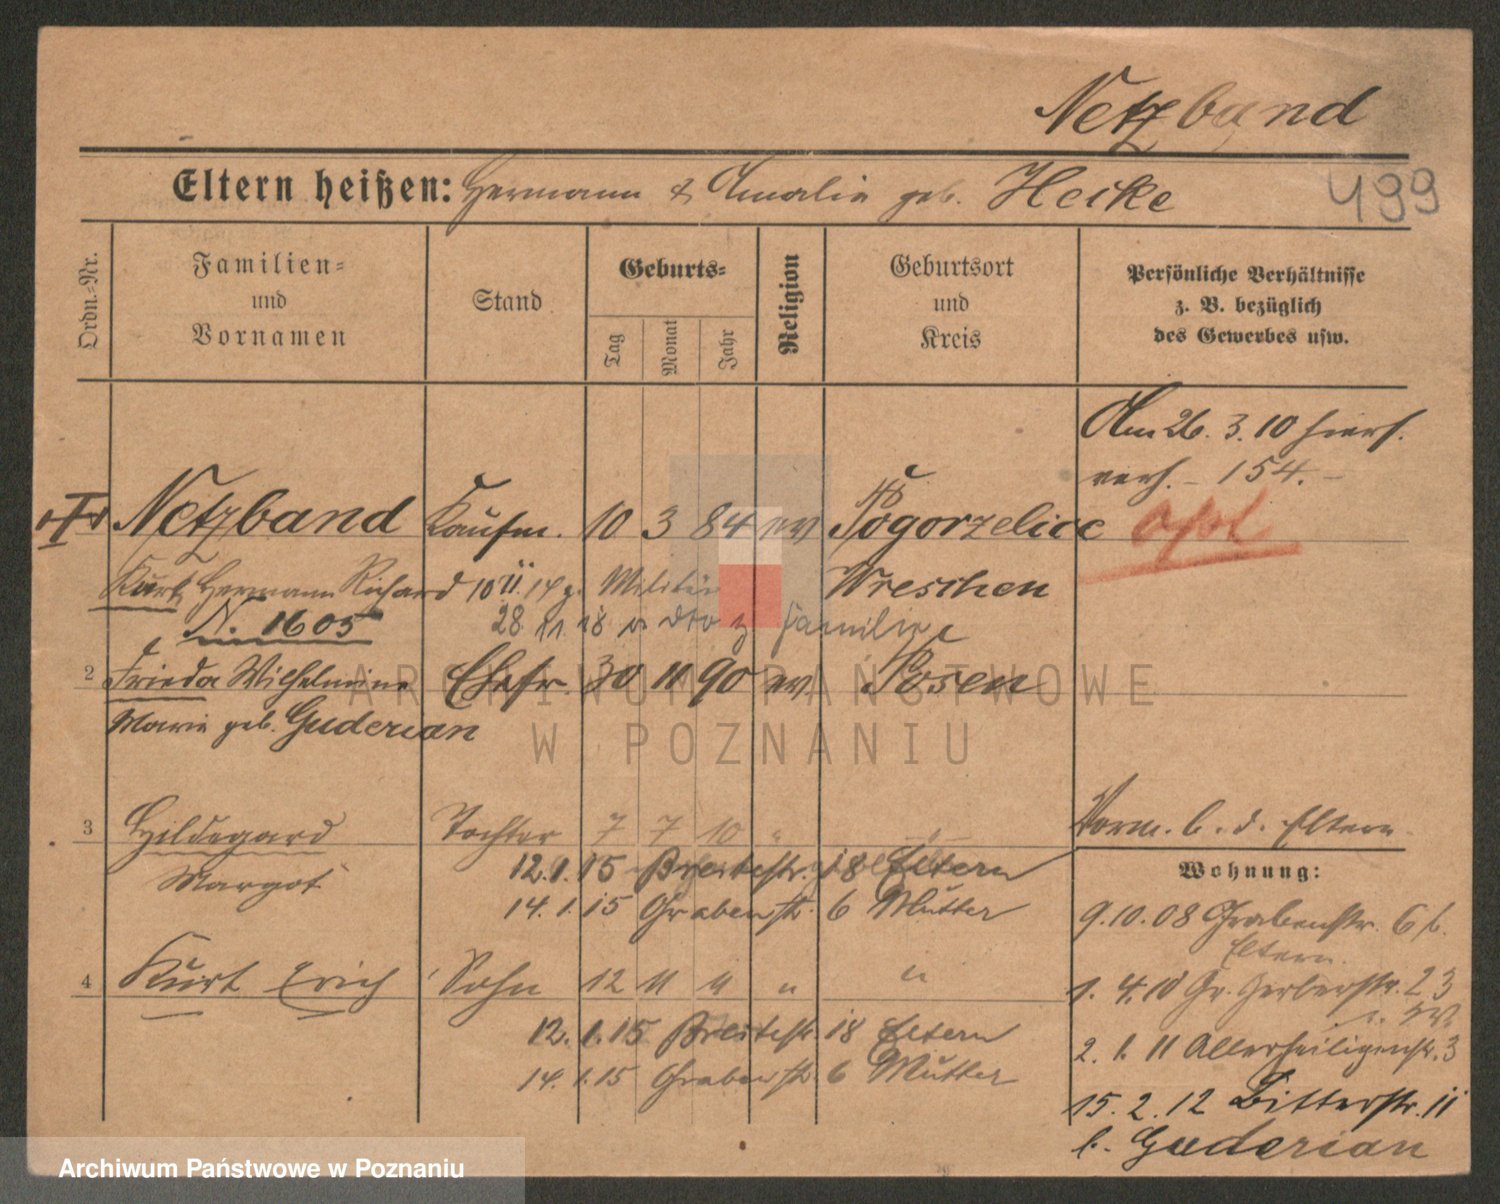 Netzband
Eltern heißen: Hermann & Amalie geb. Heike
499
Ordn.-Nr.
Familien-
und
Vornamen
Stand
Geburts-
Tag
Monat
Jahr
Religion
Geburtsort
und
Kreis
Persönliche Verhältnisse
z. B. bezüglich
des Gewerbes usw.
Am 26. 3. 10 hiers.
verh. - 154. -
Netzband Kaufm. 10 3 84 ev Pogorzelice
opl
Kurt Hermann Richard 10 11. 14 z. Militär Wreschen
N. 1605
28. 11. 18 v dto z Familie
2 Frieda Wilhelmine Ehefr. 30 11 90 ev Posen
Marie geb. Guderian
3 Hildegard Tochter 7 7 10 "
Margot
Vorm. b. d. Eltern
12. 1. 15 Breitestr. 18 Eltern
14. 1. 15 Grabenstr. 6 Mutter
4 Kurt Erich Sohn 12 11 11 " "
12. 1. 15 Breitestr. 18 Eltern
14. 1. 15 Grabenstr. 6 Mutter
Wohnung:
9. 10. 08 Grabenstr. 6 b.
Eltern.
1. 4. 10 Gr. Gerberstr. 23
2. 1. 11 Allerheiligenstr. 3
15. 2. 12 Bitterstr. 11
b. Guderian
ARCHIWUM PAŃSTWOWE
W POZNANIU
Archiwum Państwowe w Poznaniu